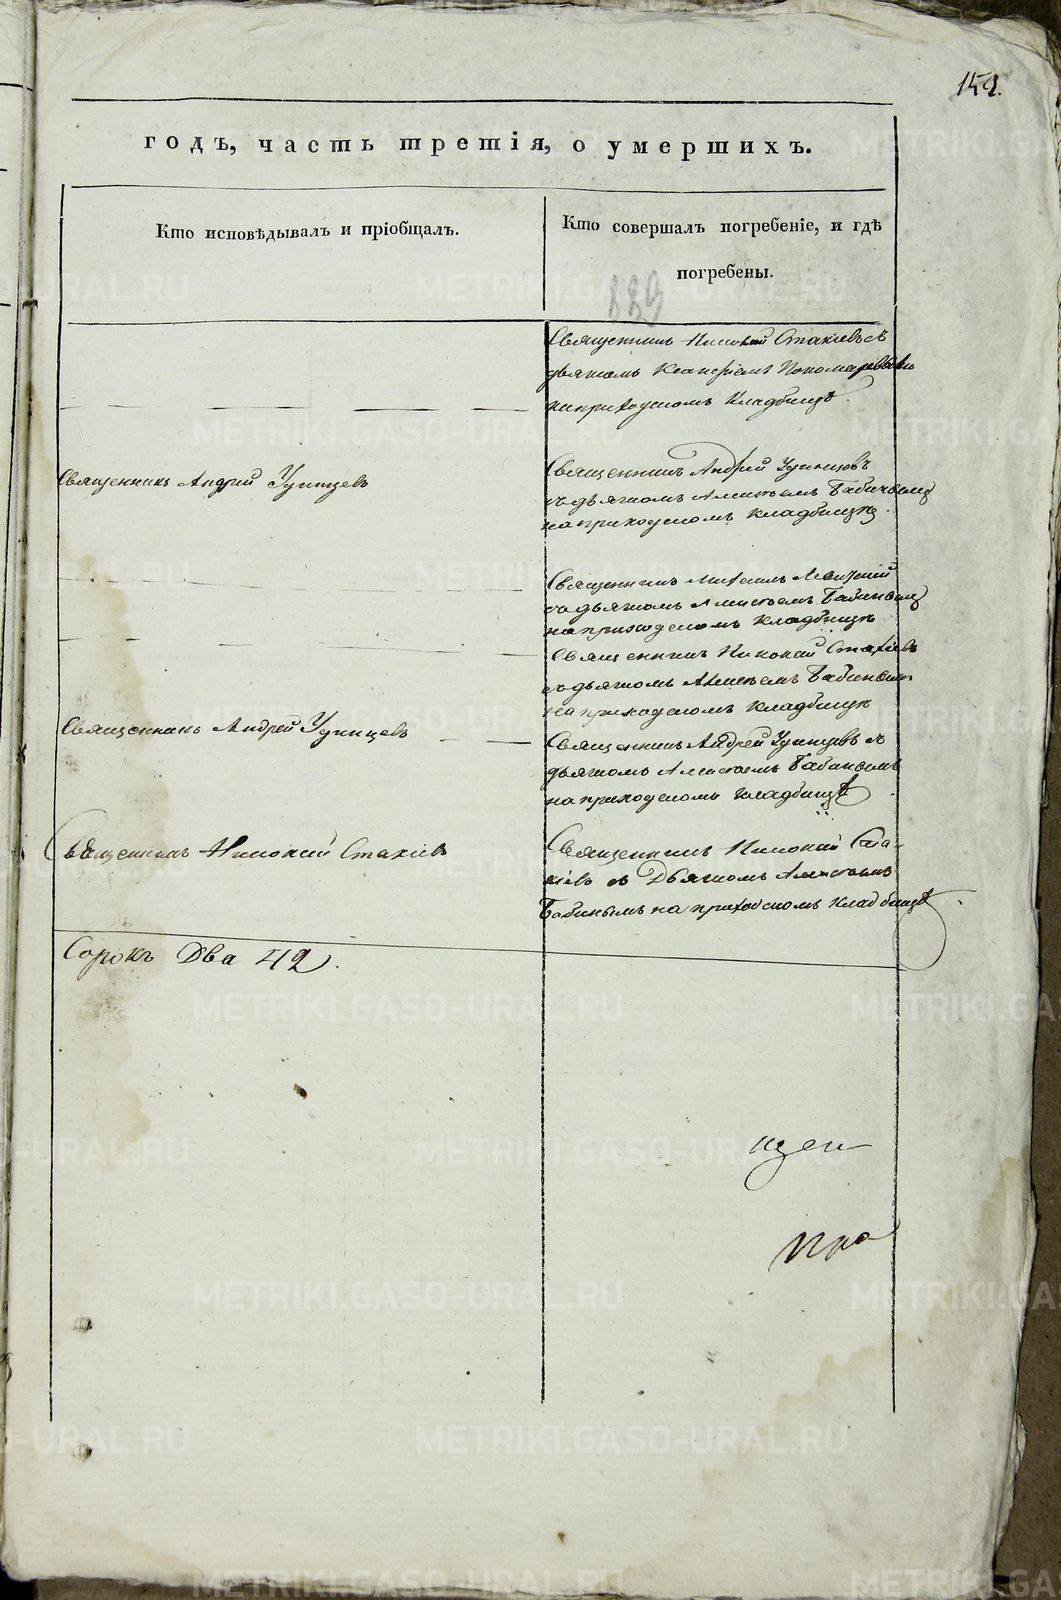 152.
годъ, часть третія, о умершихъ.
Кто исповѣдывалъ и пріобщалъ.
Кто совершалъ погребеніе, и гдѣ
погребены.
889
Священникъ Никокій Стахіевъ съ
дьякомъ Пономаревымъ
на приходскомъ кладбищѣ.
Священникъ Андрей Удинцевъ
Священникъ Андрей Удинцевъ
съ дьякомъ Алексѣемъ Бабинымъ
на приходскомъ кладбищѣ.
Священникъ Михаилъ
съ дьякомъ Алексѣемъ Бабинымъ
на приходскомъ кладбищѣ
Священникъ Никокій Стахіевъ
съ дьякомъ Алексѣемъ Бабинымъ
на приходскомъ кладбищѣ
Священникъ Андрей Удинцевъ
Священникъ Андрей Удинцевъ съ
дьякомъ Алексѣемъ Бабинымъ
на приходскомъ кладбищѣ
Священникъ Никокій Стахіевъ
Священникъ Никокій Ста-
хіевъ съ Дьякомъ Алексѣемъ
Бабинымъ на приходскомъ кладбищѣ.
Сорокъ Два 42.
METRIKI.GASO-URAL.RU